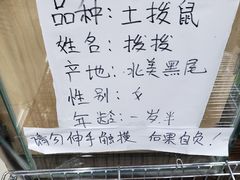 品种：土拨鼠
姓名：拨拨
产地：北美黑尾
性别：女
年龄：一岁半
请勿伸手触摸 后果自负！